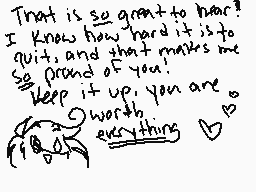 That is so great to hear!
I know how hard it is to
quit, and that makes me
so proud of you!
Keep it up, you are
worth
everything